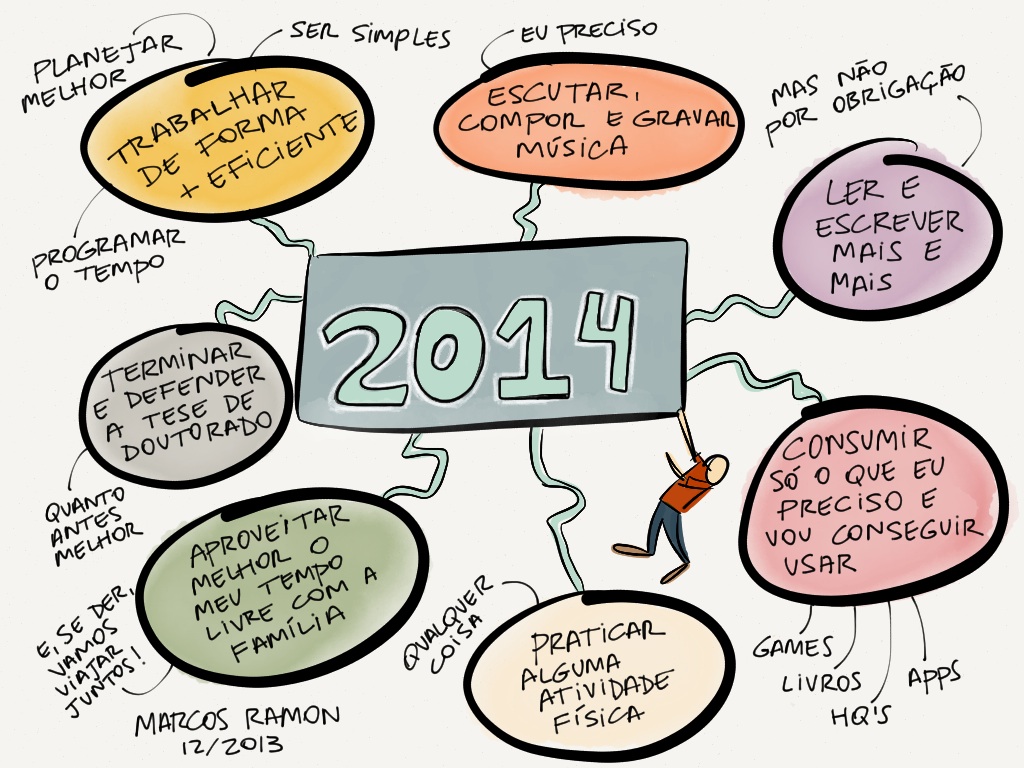 PLANEJAR
MELHOR
SER SIMPLES
TRABALHAR
DE FORMA
+ EFICIENTE
PROGRAMAR
O TEMPO
EU PRECISO
ESCUTAR,
COMPOR E GRAVAR
MÚSICA
MAS NÃO
POR OBRIGAÇÃO
LER E
ESCREVER
MAIS E
MAIS
2014
TERMINAR
E DEFENDER
A TESE DE
DOUTORADO
QUANTO
ANTES
MELHOR
CONSUMIR
SÓ O QUE EU
PRECISO E
VOU CONSEGUIR
USAR
GAMES
LIVROS
HQ'S
APPS
APROVEITAR
MELHOR O
MEU TEMPO
LIVRE COM A
FAMÍLIA
E, SE DER,
VAMOS
VIAJAR
JUNTOS!
QUALQUER
COISA
PRATICAR
ALGUMA
ATIVIDADE
FÍSICA
MARCOS RAMON
12/2013